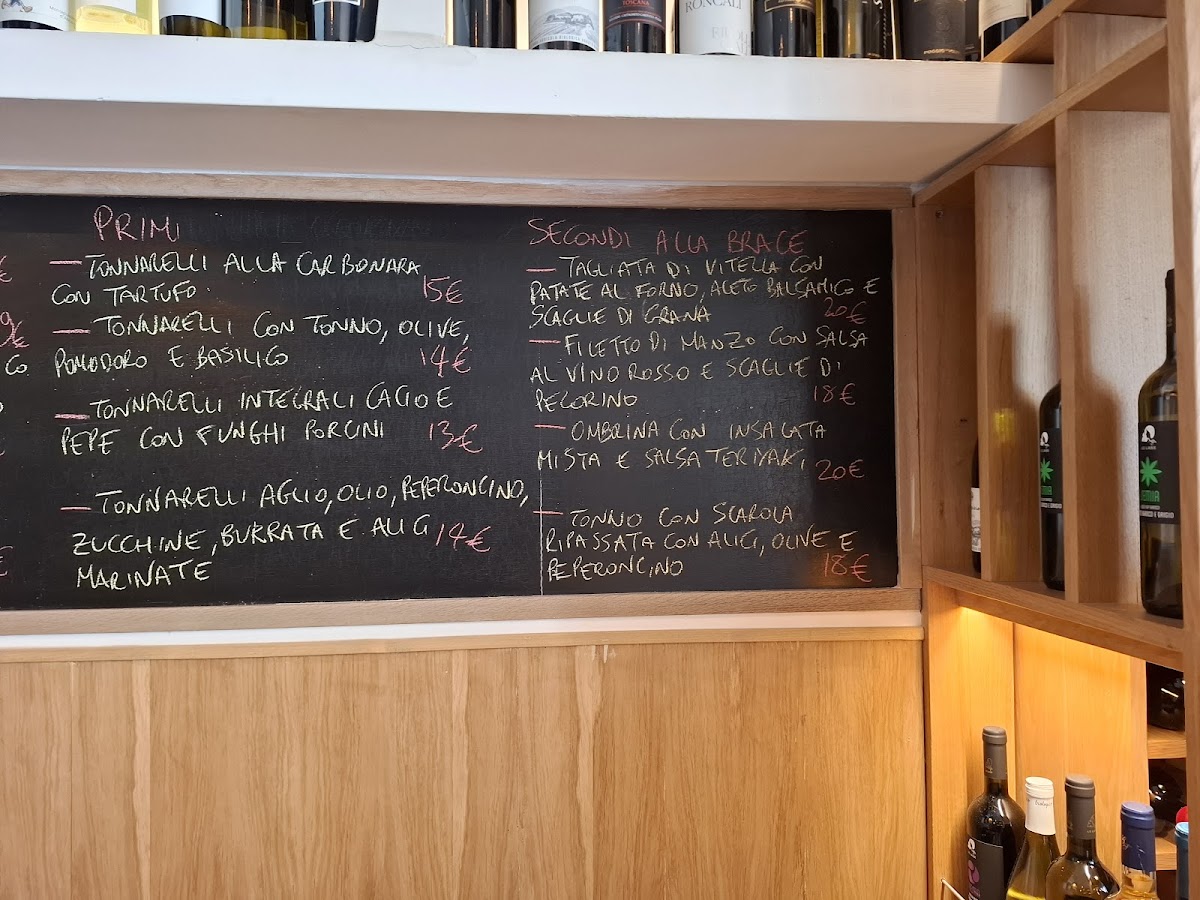 TOSCANA
RONCALI
PRIMI
— TONNARELLI ALLA CARBONARA
CON TARTUFO 15€
— TONNARELLI CON TONNO, OLIVE,
POMODORO E BASILICO 14€
— TONNARELLI INTEGRALI CACIO E
PEPE CON FUNGHI PORCINI 13€
— TONNARELLI AGLIO, OLIO, PEPERONCINO,
ZUCCHINE, BURRATA E ALICI 14€
MARINATE
SECONDI ALLA BRACE
— TAGLIATA DI VITELLA CON
PATATE AL FORNO, ACETO BALSAMICO E
SCAGLIE DI GRANA 20€
— FILETTO DI MANZO CON SALSA
AL VINO ROSSO E SCAGLIE DI
PECORINO 18€
— OMBRINA CON INSALATA
MISTA E SALSA TERIYAKI 20€
— TONNO CON SCAROLA
RIPASSATA CON ALICI, OLIVE E
PEPERONCINO 18€